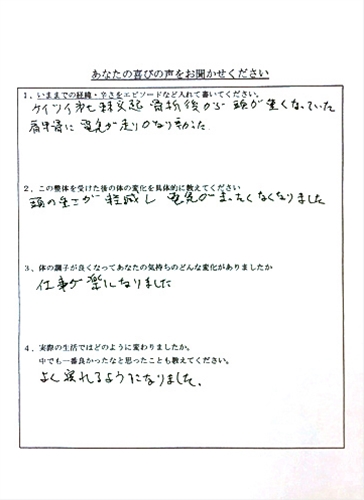 あなたの喜びの声をお聞かせください
1、いままでの経緯・辛さをエピソードなど入れて書いてください。
ケイツイ第七棘突起 骨折後から 頭が重くなっていた
肩甲骨に 電気が走りかなり辛かった
2、この整体を受けた後の体の変化を具体的に教えてください
頭の重さが 軽減し 電気がまったくなくなりました
3、体の調子が良くなってあなたの気持ちのどんな変化がありましたか
仕事が楽になりました
4、実際の生活ではどのように変わりましたか。
中でも一番良かったなと思ったことも教えてください。
よく寝れるようになりました。